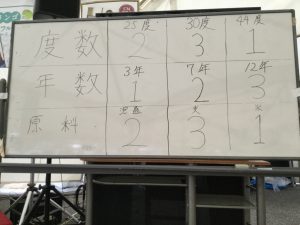 25度 30度 44度
度数 2 3 1
3年 7年 12年
年数 1 2 3
泥盛 米 米
原料 2 3 1